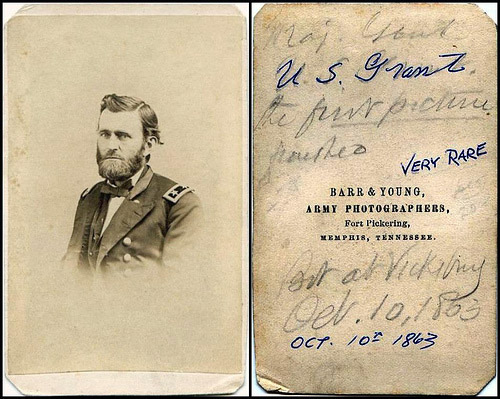 Maj. Genl
U. S. Grant
the first picture
VERY RARE
BARR & YOUNG,
ARMY PHOTOGRAPHERS,
Fort Pickering,
MEMPHIS, TENNESSEE.
at Vicksburg
Oct. 10, 1863
OCT. 10TH 1863